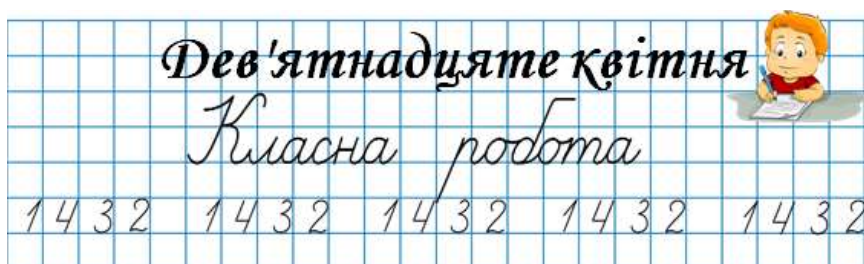 Дев'ятнадцяте квітня
Класна робота
1 4 3 2 1 4 3 2 1 4 3 2 1 4 3 2 1 4 3 2